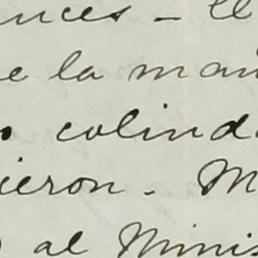 nces - el
e la man
s colind
ieron. M
al Minis